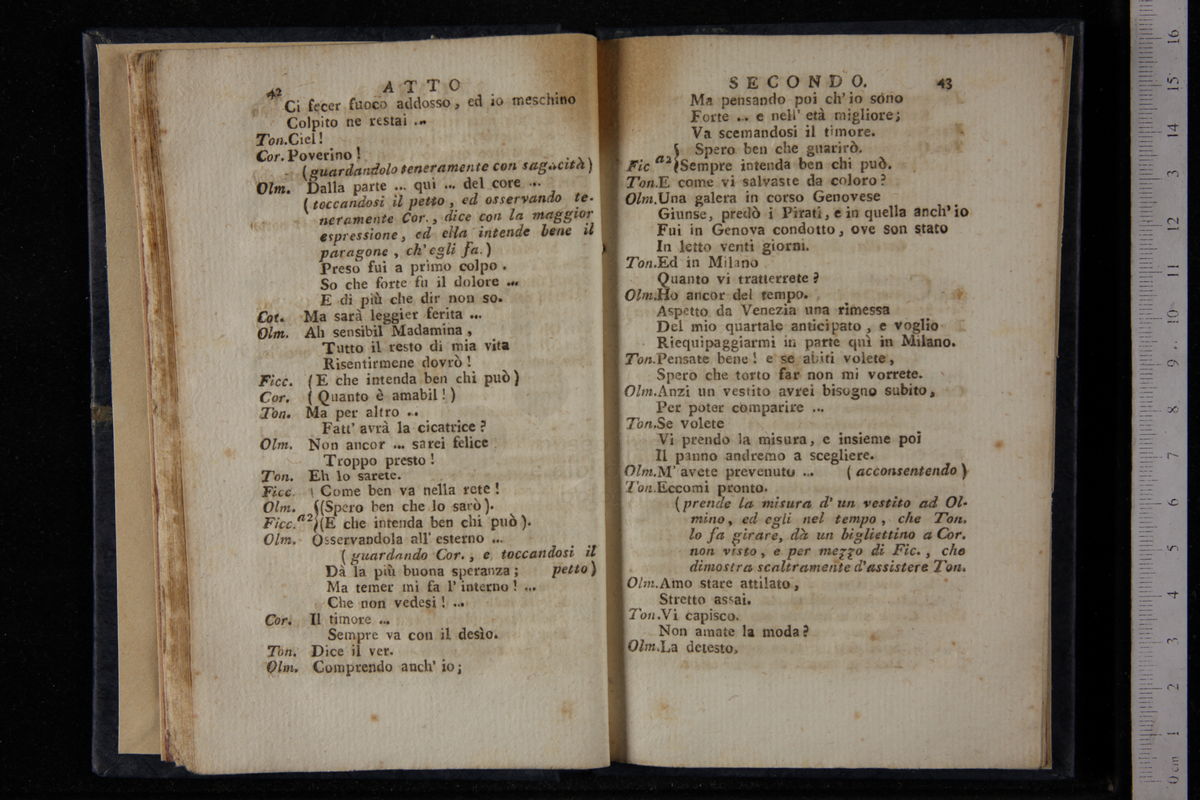 42 ATTO
Ci fecer fuoco addosso, ed io meschino
Colpito ne restai ..
Ton. Ciel!
Cor. Poverino!
(guardandolo teneramente con sagacità)
Olm. Dalla parte ... qui ... del core ...
(toccandosi il petto, ed osservando te-
neramente Cor., dice con la maggior
espressione, ed ella intende bene il
paragone, ch' egli fa.)
Preso fui a primo colpo.
So che forte fu il dolore ...
E di più che dir non so.
Cot. Ma sarà leggier ferita ...
Olm. Ah sensibil Madamina,
Tutto il resto di mia vita
Risentirmene dovrò!
Ficc. (E che intenda ben chi può)
Cor. (Quanto è amabil!)
Ton. Ma per altro ..
Fatt' avrà la cicatrice?
Olm. Non ancor ... sarei felice
Troppo presto!
Ton. Eh lo sarete.
Ficc. Come ben va nella rete!
Olm. (Spero ben che lo sarò).
Ficc. a2 (E che intenda ben chi può).
Olm. Osservandola all' esterno ...
(guardando Cor., e toccandosi il
Dà la più buona speranza; petto)
Ma temer mi fa l' interno! ...
Che non vedesi! ...
Cor. Il timore ...
Sempre va con il desìo.
Ton. Dice il ver.
Olm. Comprendo anch' io;
SECONDO. 43
Ma pensando poi ch' io sono
Forte .. e nell' età migliore;
Va scemandosi il timore.
Spero ben che guarirò.
Fic a2 Sempre intenda ben chi può.
Ton. E come vi salvaste da coloro?
Olm. Una galera in corso Genovese
Giunse, predò i Pirati, e in quella anch' io
Fui in Genova condotto, ove son stato
In letto venti giorni.
Ton. Ed in Milano
Quanto vi tratterrete?
Olm. Ho ancor del tempo.
Aspetto da Venezia una rimessa
Del mio quartale anticipato, e voglio
Riequipaggiarmi in parte quì in Milano.
Ton. Pensate bene! e se abiti volete,
Spero che torto far non mi vorrete.
Olm. Anzi un vestito avrei bisogno subito,
Per poter comparire ...
Ton. Se volete
Vi prendo la misura, e insieme poi
Il panno andremo a scegliere.
Olm. M' avete prevenuto ... (acconsentendo)
Ton. Eccomi pronto.
(prende la misura d' un vestito ad Ol-
mino, ed egli nel tempo, che Ton.
lo fa girare, dà un bigliettino a Cor.
non visto, e per mezzo di Fic., che
dimostra scaltramente d'assistere Ton.
Olm. Amo stare attilato,
Stretto assai.
Ton. Vi capisco.
Non amate la moda?
Olm. La detesto,
0 cm 1 2 3 4 5 6 7 8 9 10 11 12 13 14 15 16